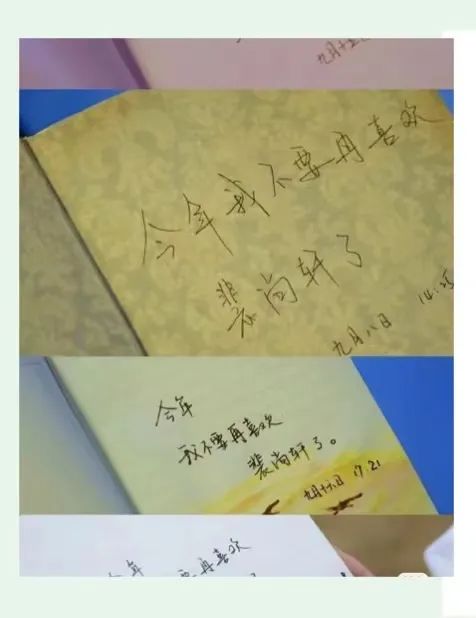 九月十五
今年我不要再喜欢
裴尚轩了
九月八日 14:25
今年
我不要再喜欢
裴尚轩了。
九月十六日 17:21
今年 不要再喜欢